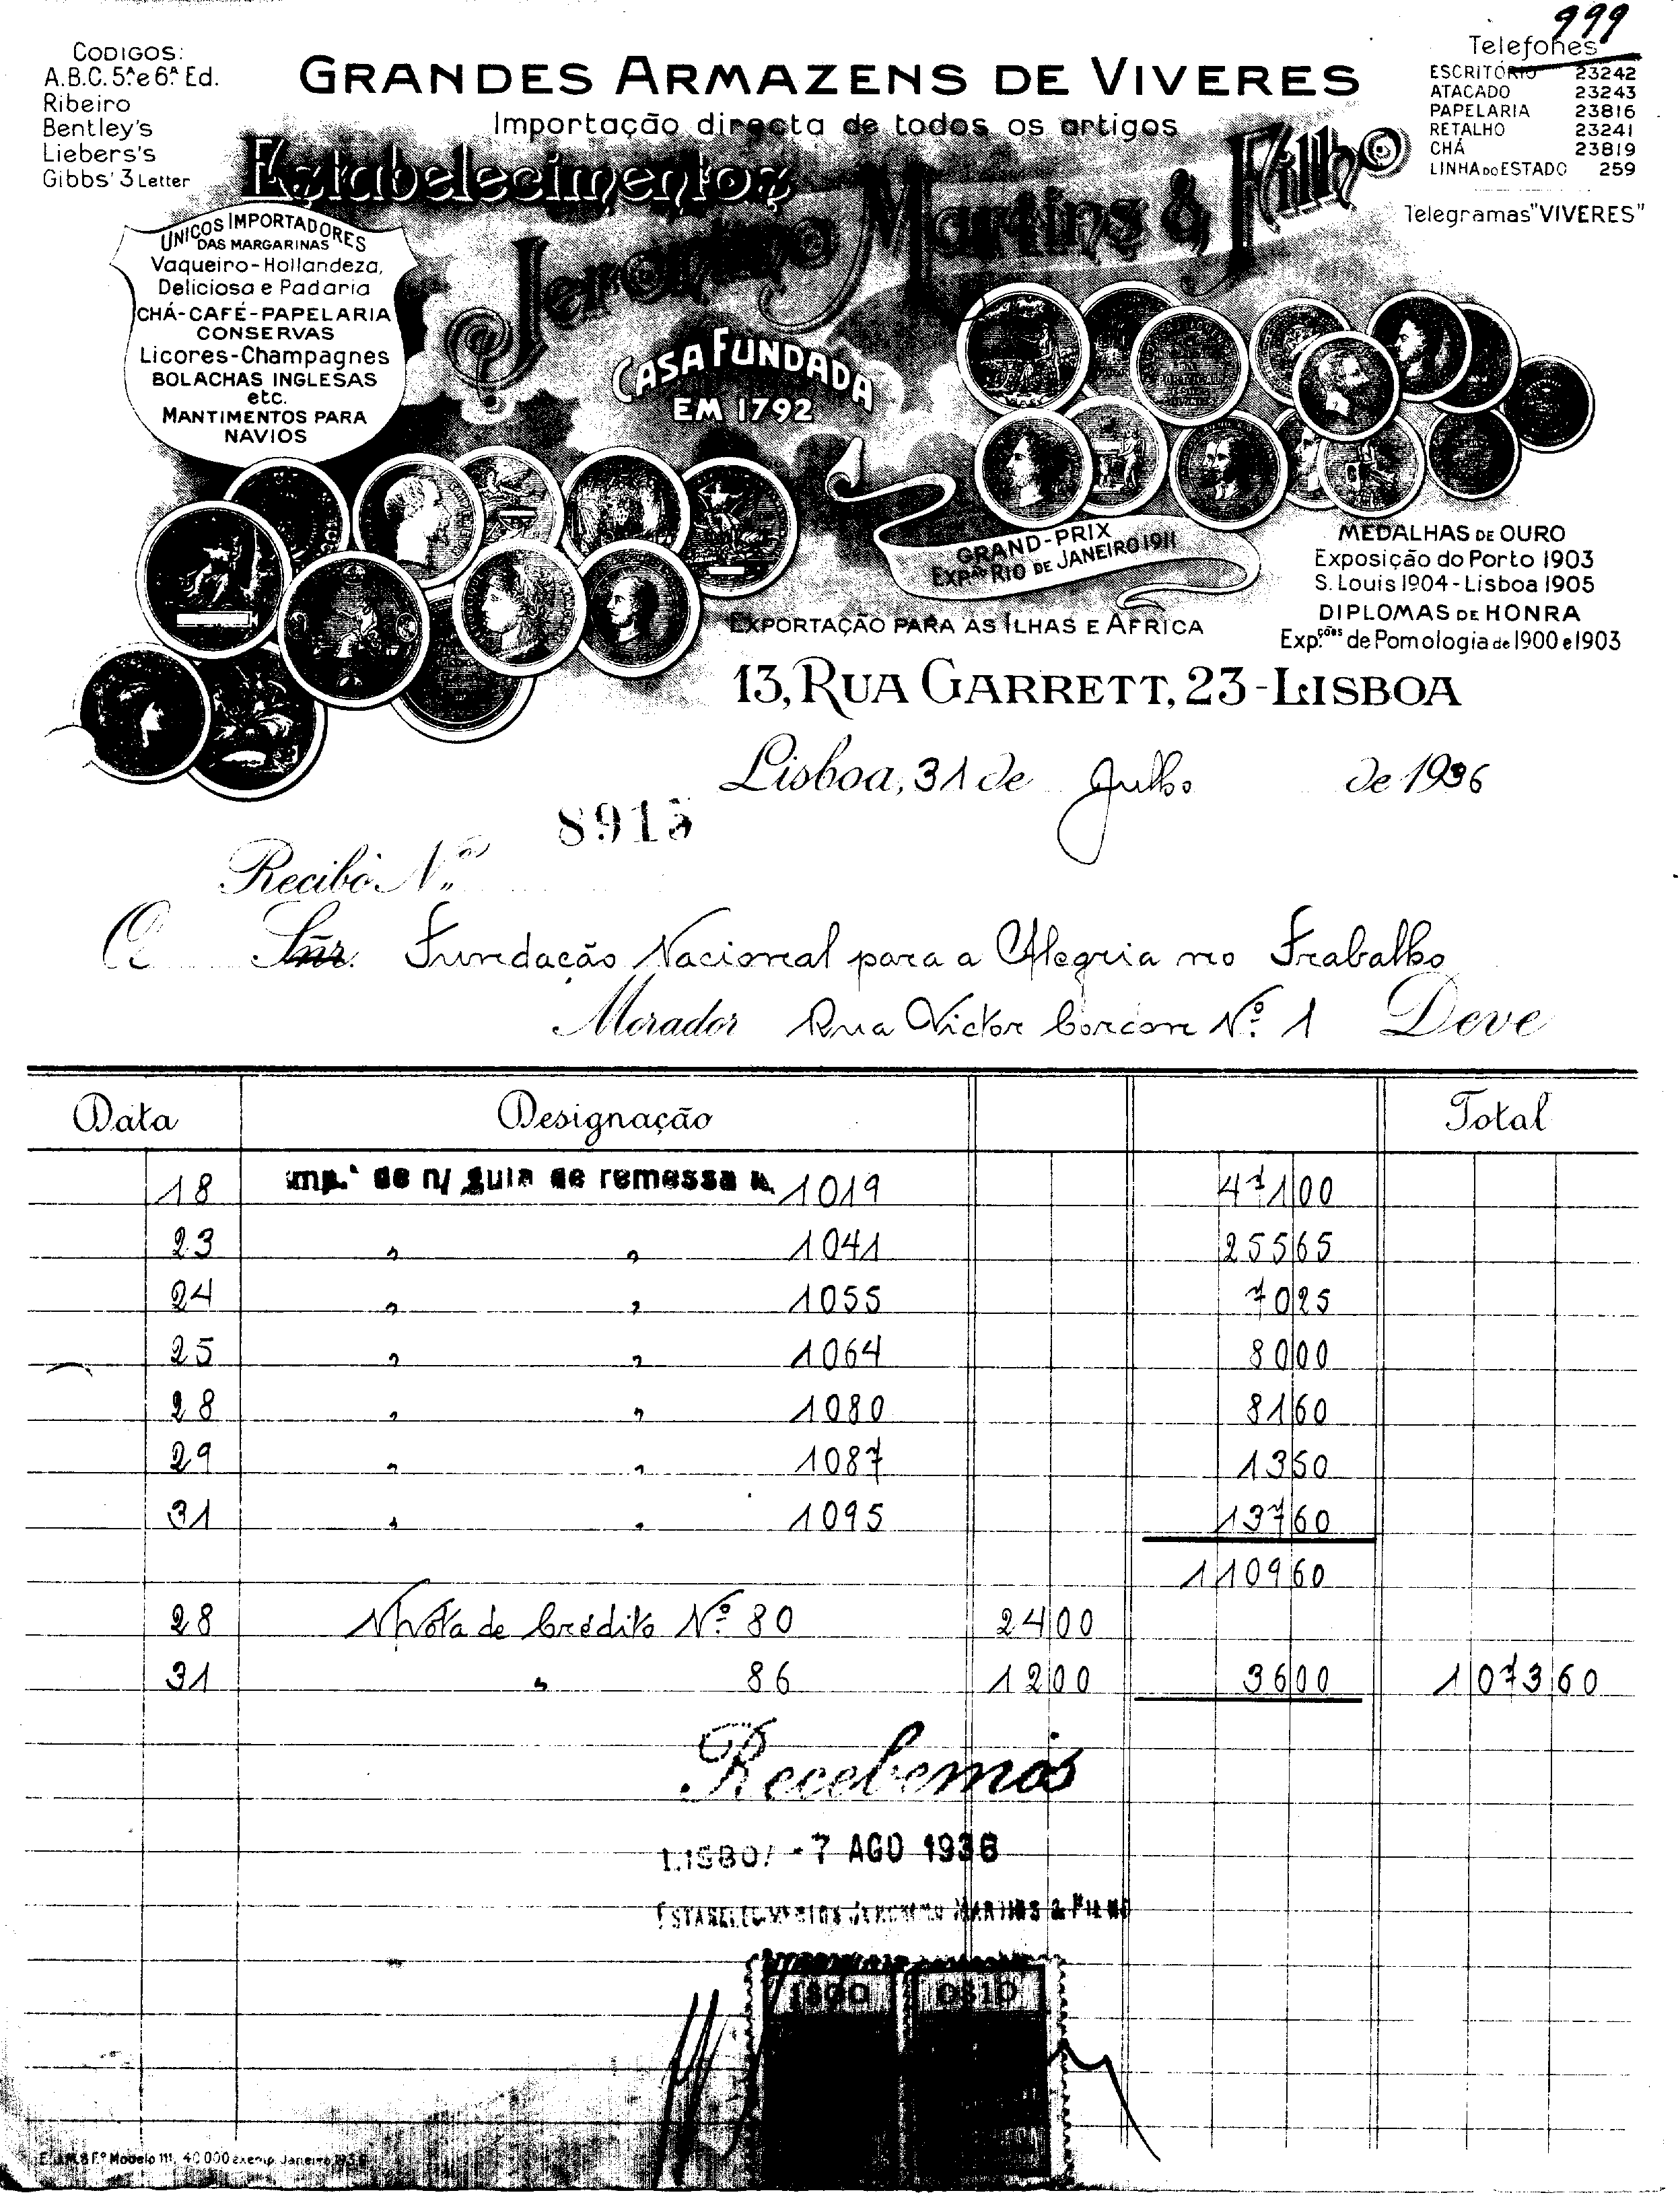 999
CODIGOS:
A.B.C. 5ª e 6ª Ed.
Ribeiro
Bentley's
Liebers's
Gibbs' 3 Letter
GRANDES ARMAZENS DE VIVERES
Importação directa de todos os artigos
Estabelecimentos
Jeronimo Martins & Filho
Telefones
ESCRITÓRIO 23242
ATACADO 23243
PAPELARIA 23816
RETALHO 23241
CHÁ 23819
LINHA DO ESTADO 259
Telegramas "VIVERES"
UNICOS IMPORTADORES
DAS MARGARINAS
Vaqueiro-Hollandeza,
Deliciosa e Padaria
CHÁ-CAFÉ-PAPELARIA
CONSERVAS
Licores-Champagnes
BOLACHAS INGLESAS
etc.
MANTIMENTOS PARA
NAVIOS
CASA FUNDADA
EM 1792
GRAND-PRIX
EXPÃO RIO DE JANEIRO 1911
MEDALHAS DE OURO
Exposição do Porto 1903
S. Louis 1904-Lisboa 1905
DIPLOMAS DE HONRA
Exp.ções de Pomologia de 1900 e 1903
EXPORTAÇÃO PARA AS ILHAS E AFRICA
13, RUA GARRETT, 23-LISBOA
Lisboa, 31 de Julho de 1936
8915
Recibo Nº
O Snr. Fundação Nacional para a Alegria no Trabalho
Morador Rua Victor Corcon Nº 1 Deve
Data Designação Total
18 Imp.ª de n/ guia de remessa 1019 471 00
23 " " 1041 255 65
24 " " 1055 70 25
25 " " 1064 80 00
28 " " 1080 81 60
29 " " 1087 13 50
31 " " 1095 137 60
1109 60
28 N/ Nota de Crédito Nº 80 24 00
31 " 86 12 00 36 00 1 073 60
Recebemos
LISBOA -7 AGO 1936
ESTABELECIMENTOS JERONIMO MARTINS & FILHO
1$00 0$10
Modelo 111, 40.000 exemp. Janeiro